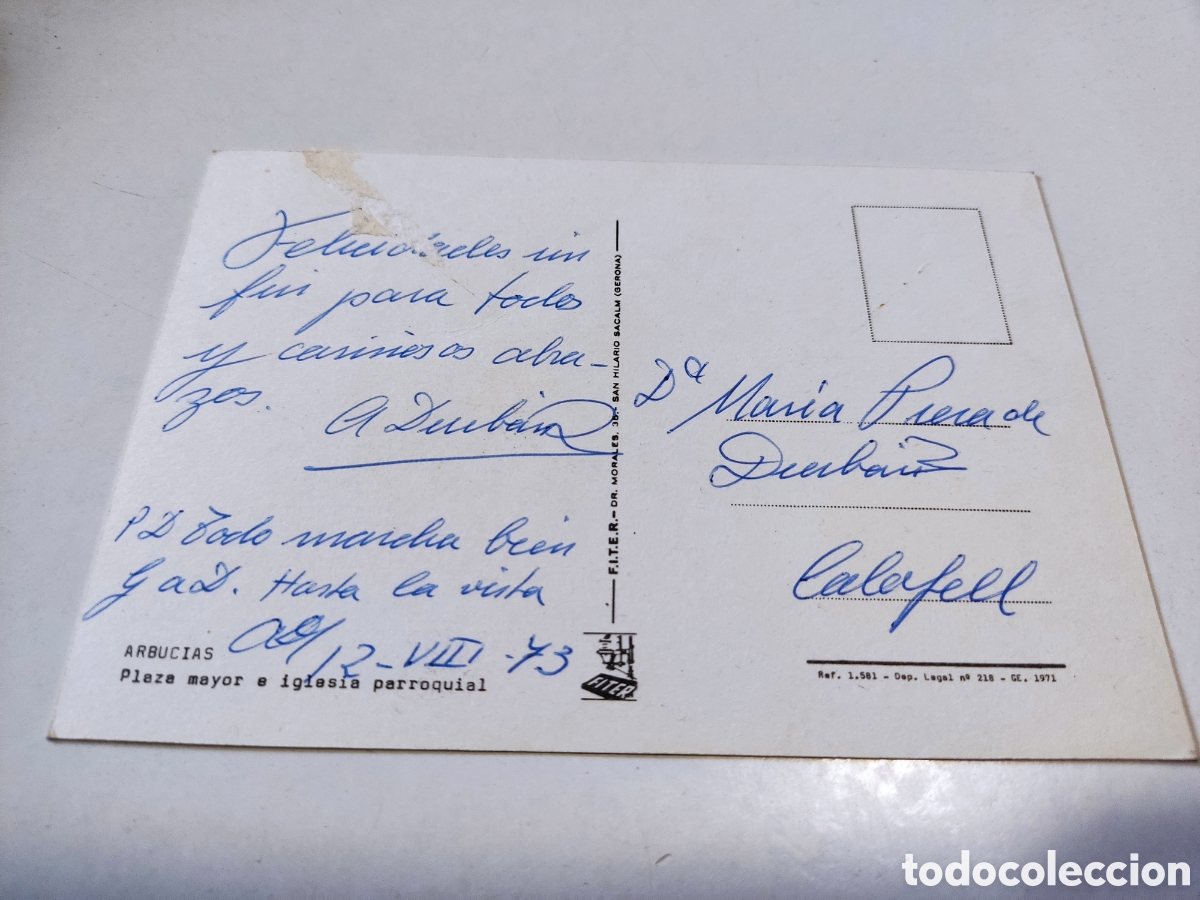 Felicidades sin
fin para todos
y cariñosos abra-
zos.
A Durbán
P D Todo marcha bien
G a D. Hasta la vista
12-VIII-73
ARBUCIAS
Plaza mayor e iglesia parroquial
F.I.T.E.R. - DR. MORALES, 38 - SAN HILARIO SACALM (GERONA)
FITER
Dª María Piera de
Durbán
Calafell
Ref. 1.581 - Dep. Legal nº 218 - GE. 1971
todocoleccion